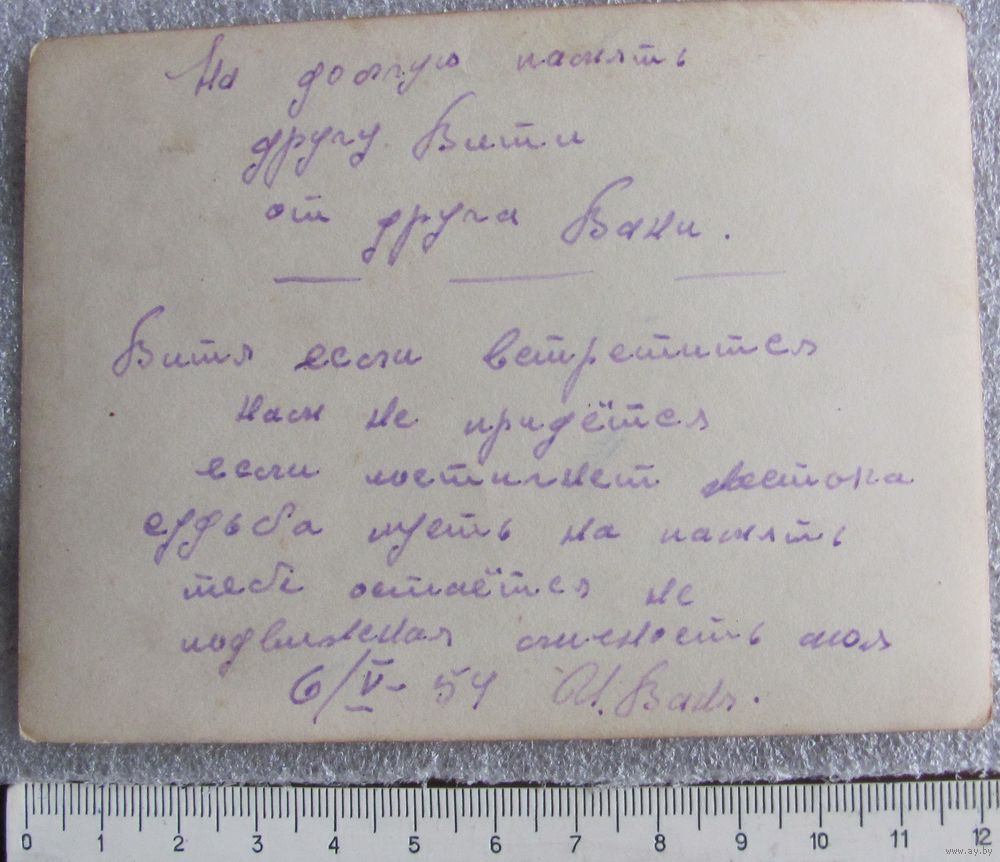 На долгую память
другу Вити
от друга Вани.
Витя если встретится
нам не придётся
если постигнет жестока
судьба пусть на память
тебе остаётся не
подвижная личность моя
6/V-54 Ваня.
0 1 2 3 4 5 6 7 8 9 10 11 12
www.ay.by